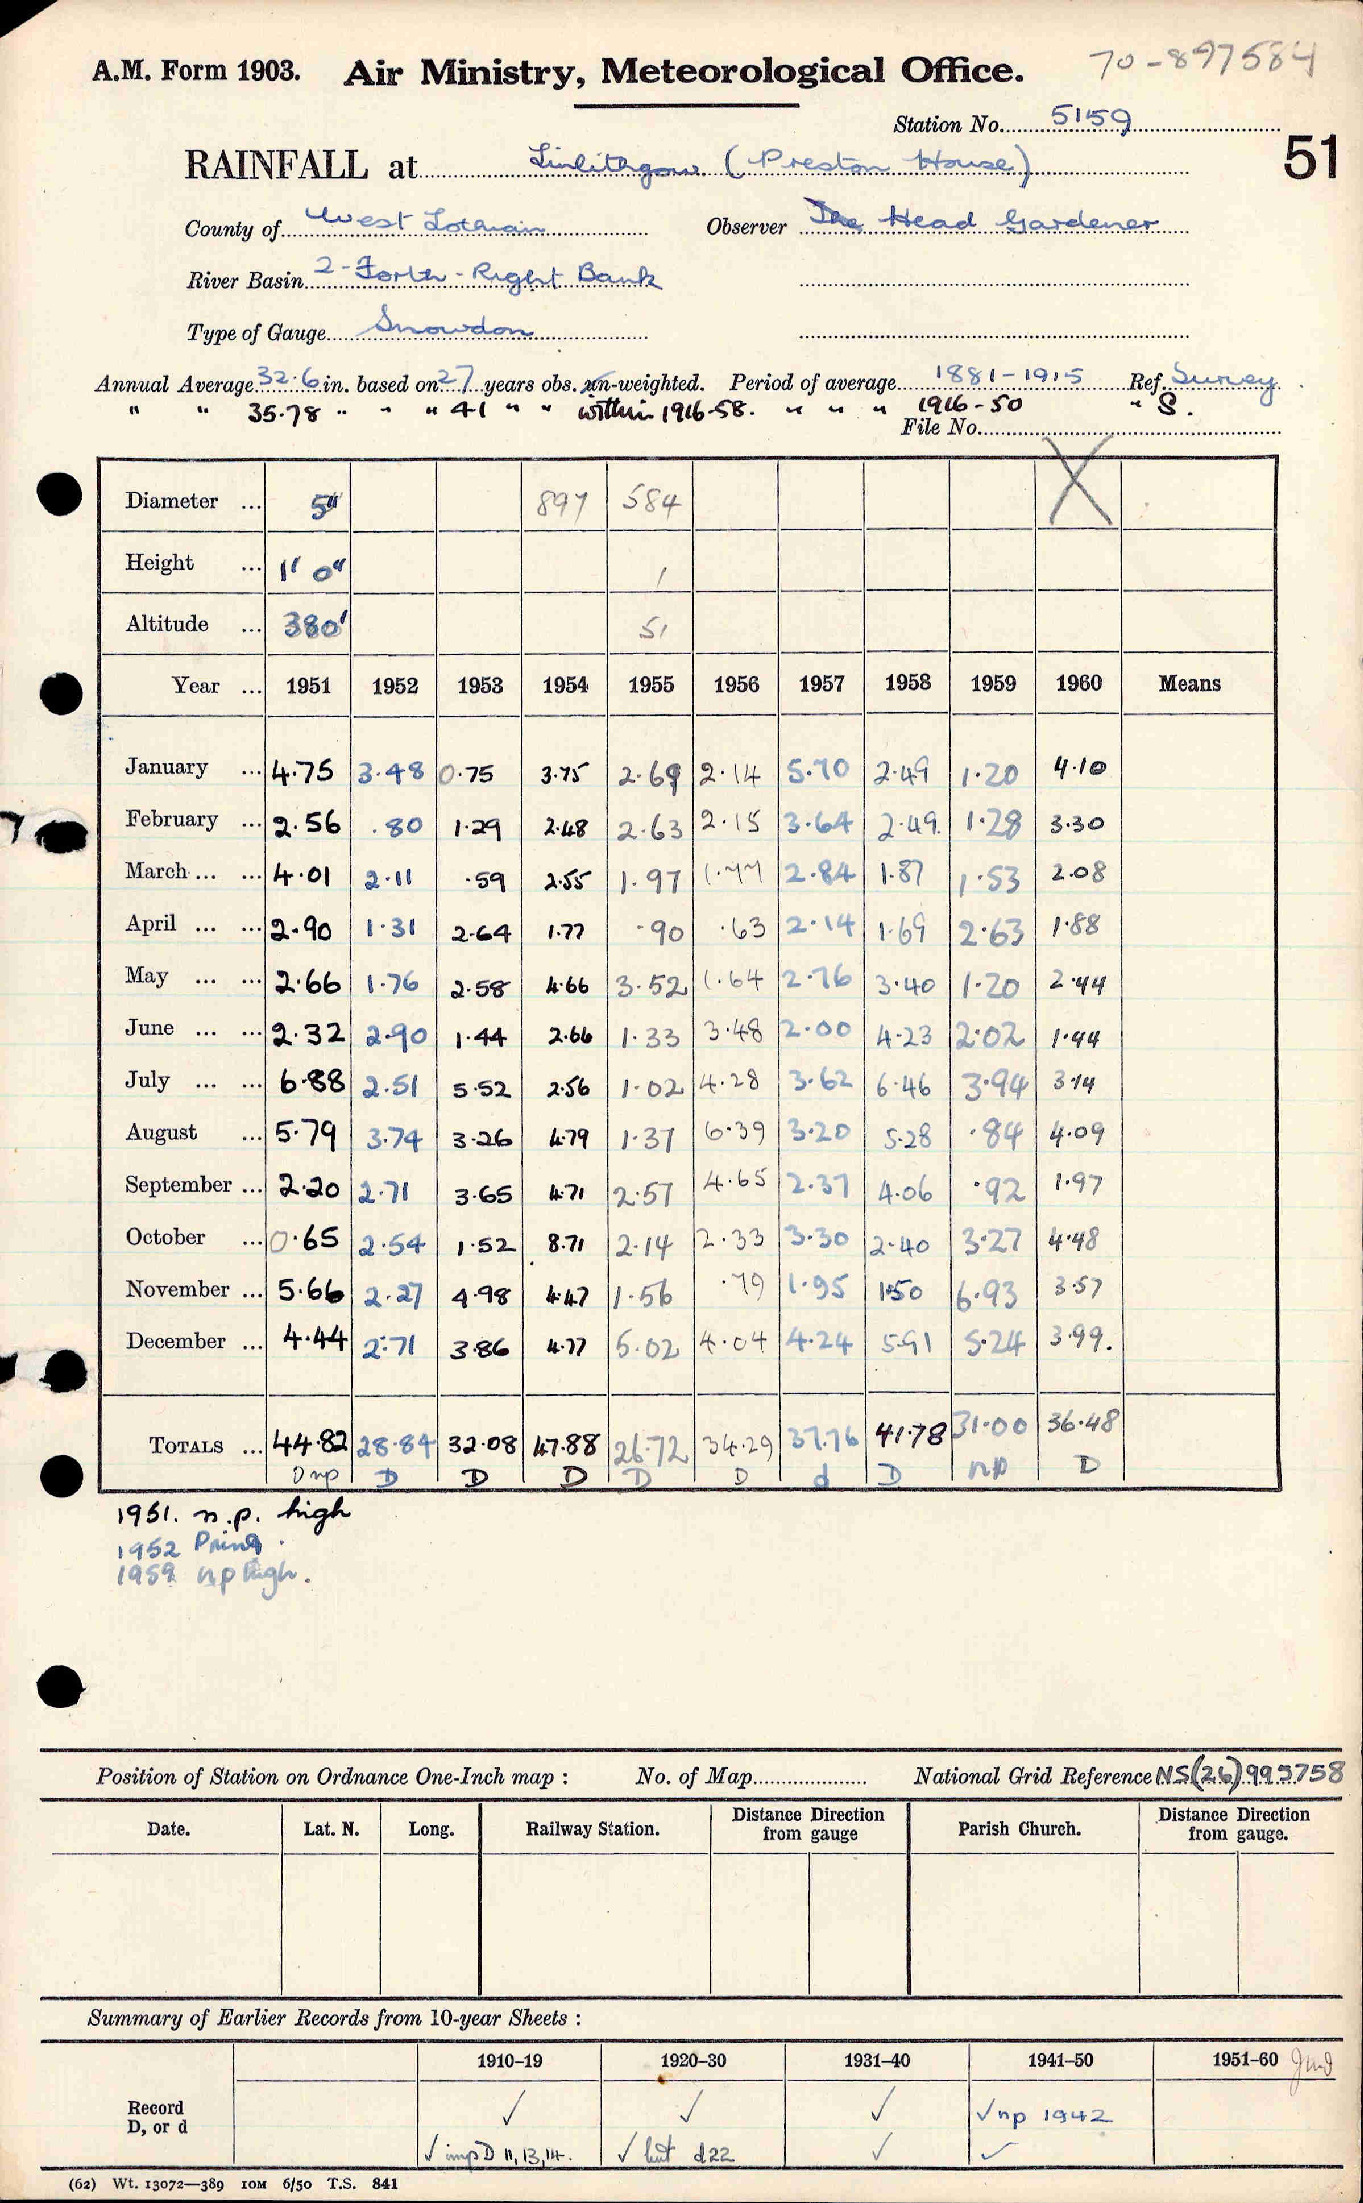 70-897584
A.M. Form 1903. Air Ministry, Meteorological Office.
Station No. 5159
51
RAINFALL at Linlithgow (Preston House)
County of West Lothian Observer The Head Gardener
River Basin 2-Forth-Right Bank
Type of Gauge Snowdon
Annual Average 32.6 in. based on 27 years obs. un-weighted. Period of average 1881-1915 Ref. Survey
" " 35.78 " " " 41 " " within 1916-58. " " " 1916-50 " S.
File No.
Diameter ... 5" 897 584
Height ... 1' 0" 1
Altitude ... 380' 51
Year ... 1951 1952 1953 1954 1955 1956 1957 1958 1959 1960 Means
January ... 4.75 3.48 0.75 3.75 2.69 2.14 5.70 2.49 1.20 4.10
February ... 2.56 .80 1.29 2.48 2.63 2.15 3.64 2.49 1.28 3.30
March ... ... 4.01 2.11 .59 2.55 1.97 1.77 2.84 1.87 1.53 2.08
April ... ... 2.90 1.31 2.64 1.77 .90 .63 2.14 1.69 2.63 1.88
May ... ... 2.66 1.76 2.58 4.66 3.52 1.64 2.76 3.40 1.20 2.44
June ... ... 2.32 2.90 1.44 2.66 1.33 3.48 2.00 4.23 2.02 1.44
July ... ... 6.88 2.51 5.52 2.56 1.02 4.28 3.62 6.46 3.94 3.14
August ... 5.79 3.74 3.26 4.79 1.37 6.39 3.20 5.28 .84 4.09
September ... 2.20 2.71 3.65 4.71 2.57 4.65 2.37 4.06 .92 1.97
October ... 0.65 2.54 1.52 8.71 2.14 2.33 3.30 2.40 3.27 4.48
November ... 5.66 2.27 4.98 4.47 1.56 .79 1.95 1.50 6.93 3.57
December ... 4.44 2.71 3.86 4.77 5.02 4.04 4.24 5.91 5.24 3.99.
TOTALS ... 44.82 28.84 32.08 47.88 26.72 34.29 37.76 41.78 31.00 36.48
D np D D D D D d D np D
1951. n.p. high
1952 Pring.
1959 np high.
Position of Station on Ordnance One-Inch map : No. of Map National Grid Reference NS(26)995758
Date. Lat. N. Long. Railway Station. Distance Direction from gauge Parish Church. Distance Direction from gauge.
Summary of Earlier Records from 10-year Sheets :
1910-19 1920-30 1931-40 1941-50 1951-60
Record ✓ ✓ ✓ ✓ np 1942
D, or d ✓ imp D 11, 13, 14. ✓ but d22 ✓ ✓
(62) Wt. 13072—389 10M 6/50 T.S. 841